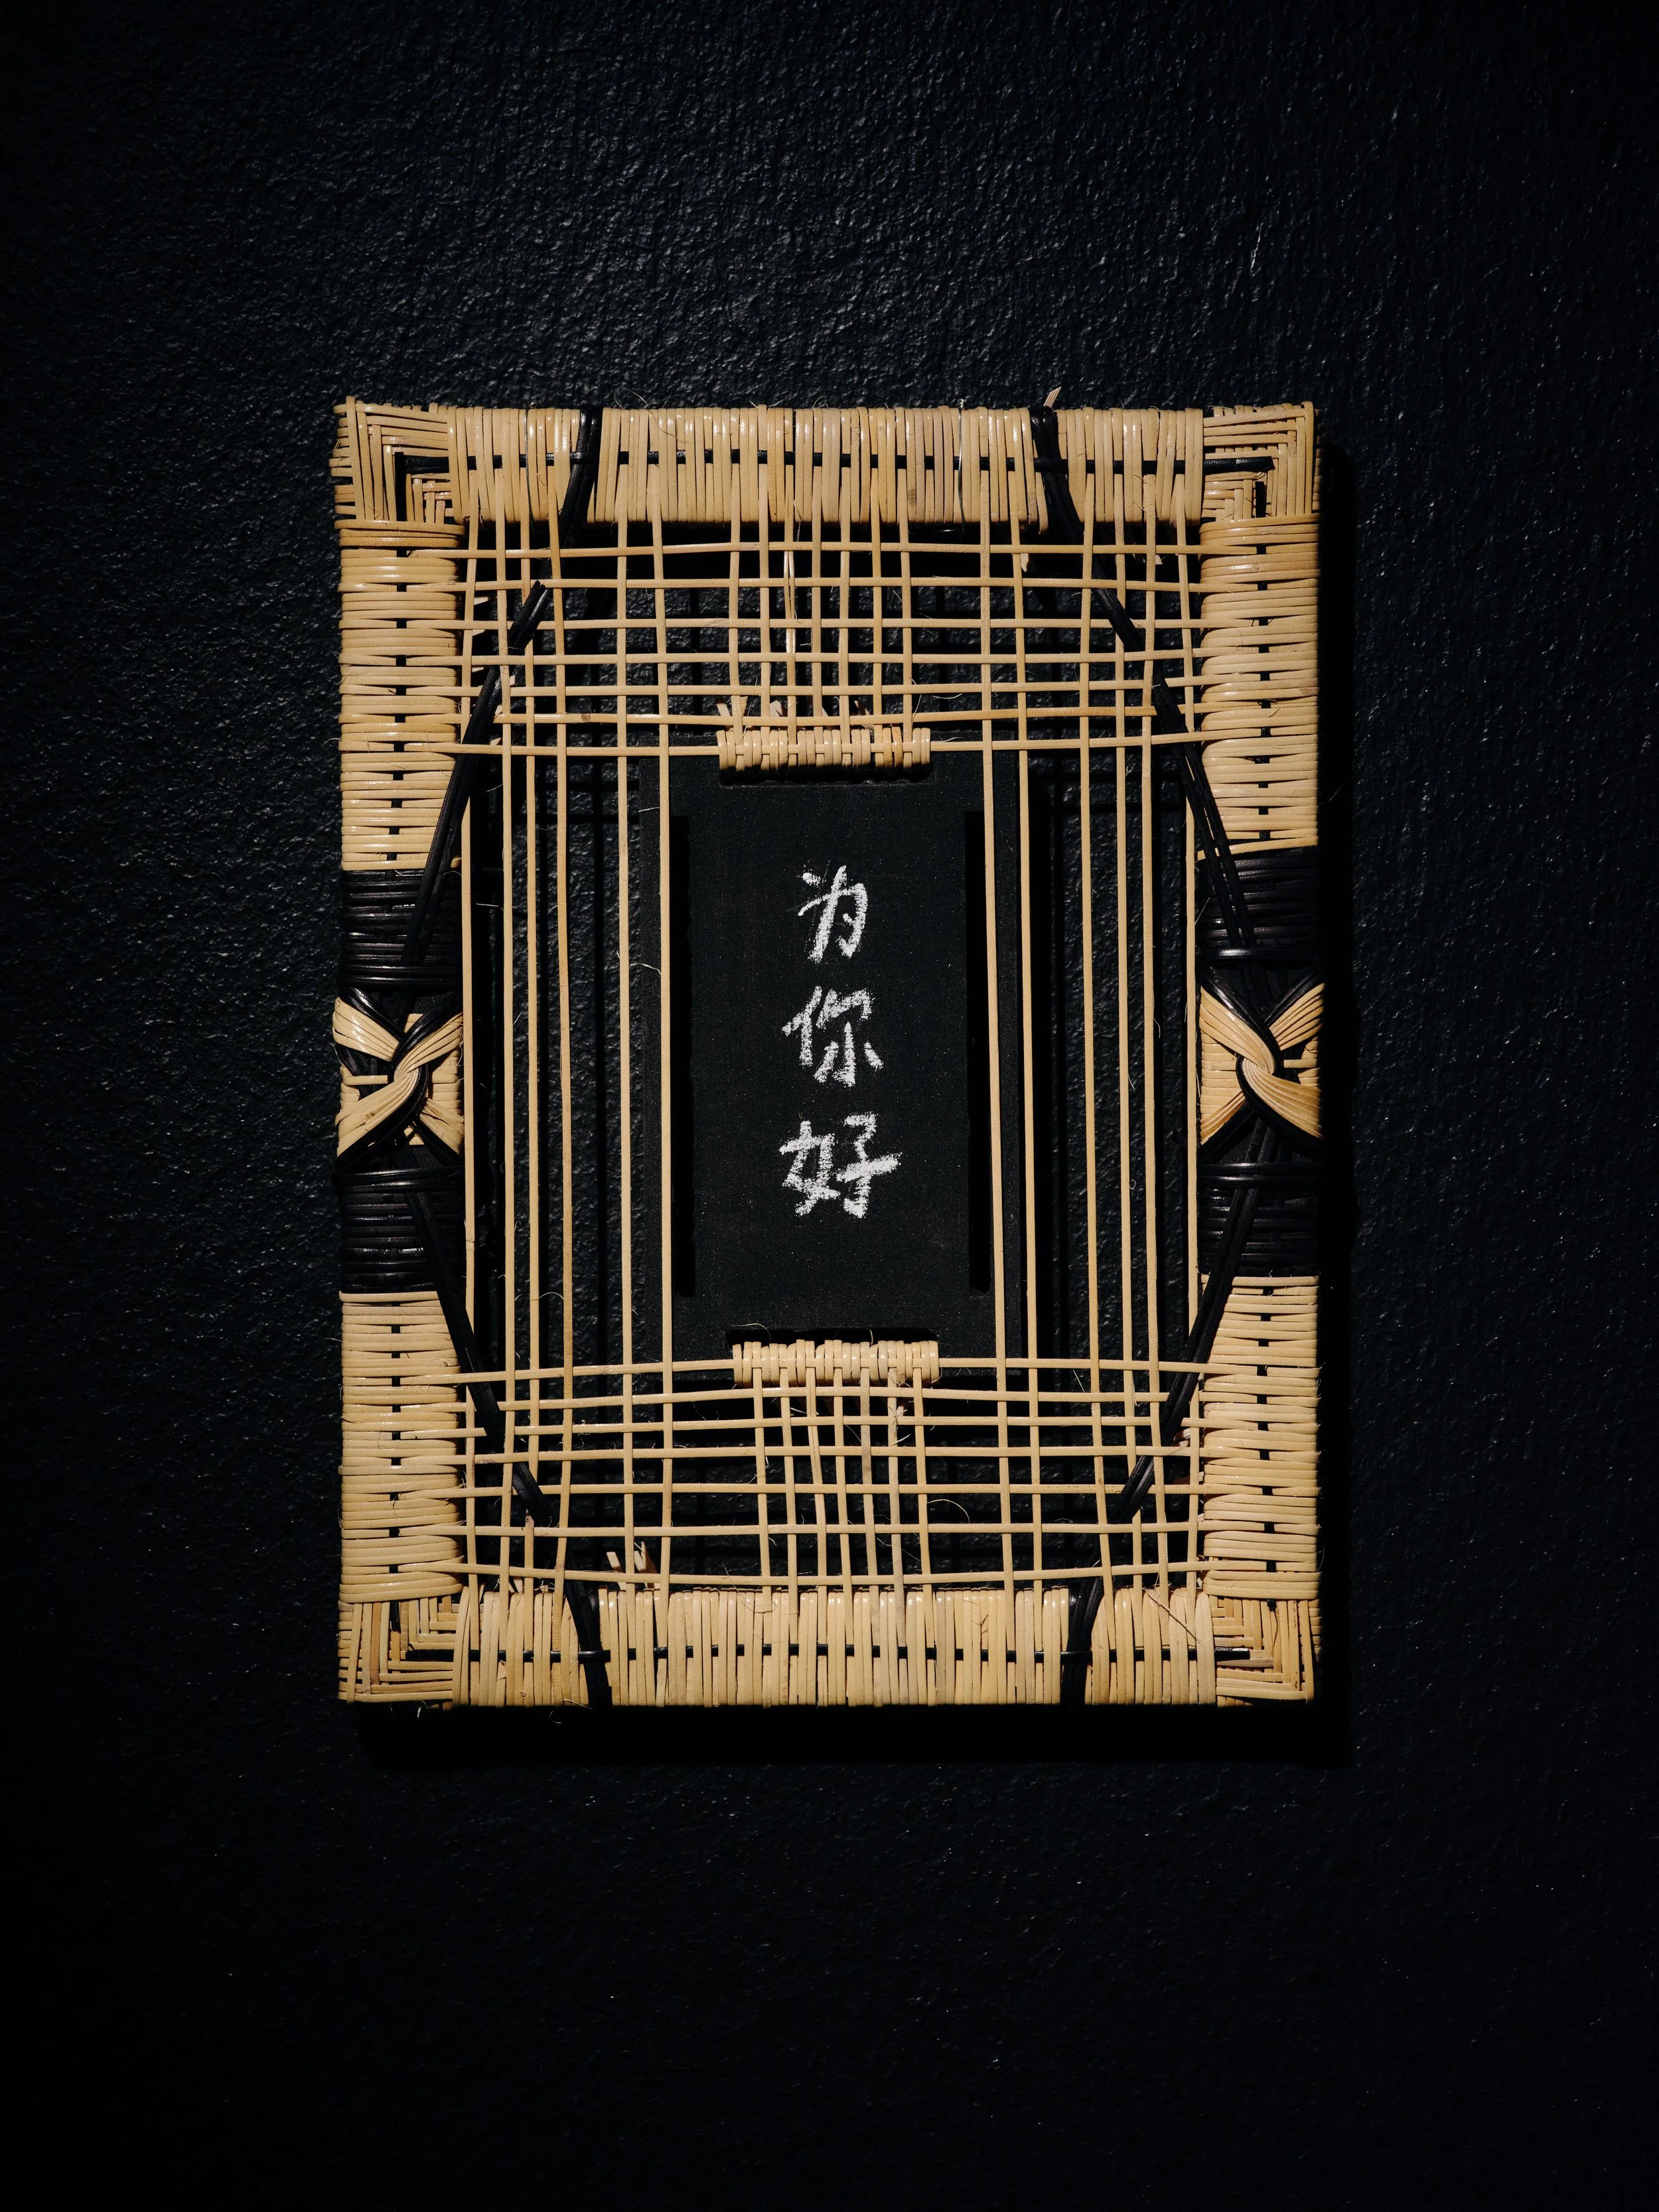 为你好